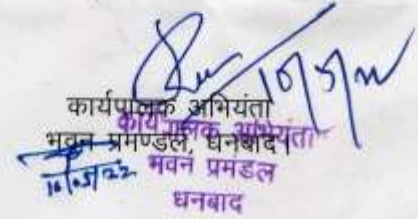 10/5/22
कार्यपालक अभियंता
भवन प्रमण्डल, धनबाद।
कार्यपालक अभियंता
भवन प्रमंडल
धनबाद
10/05/22